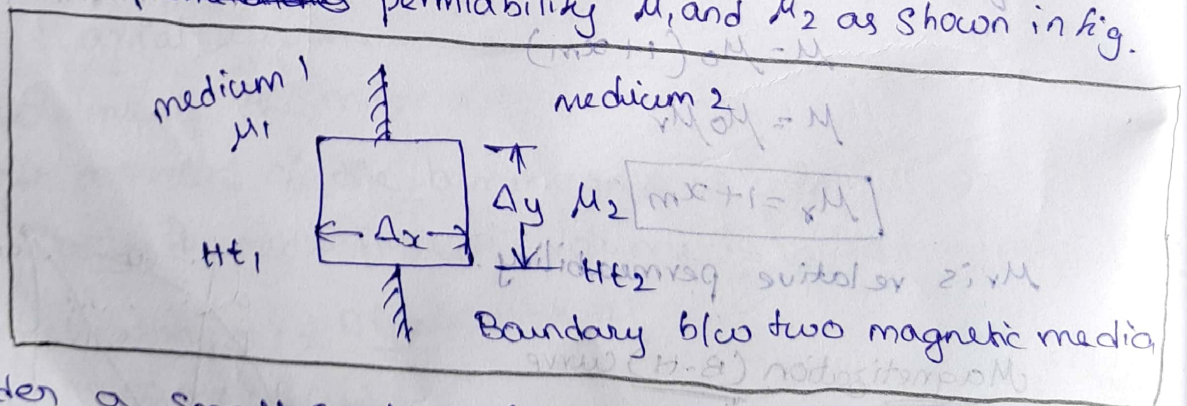 permiability μ, and μ2 as shown in fig.
medium 1
medium 2
μ1
Δy μ2
Δx
Ht1
Ht2
Boundary b/w two magnetic media